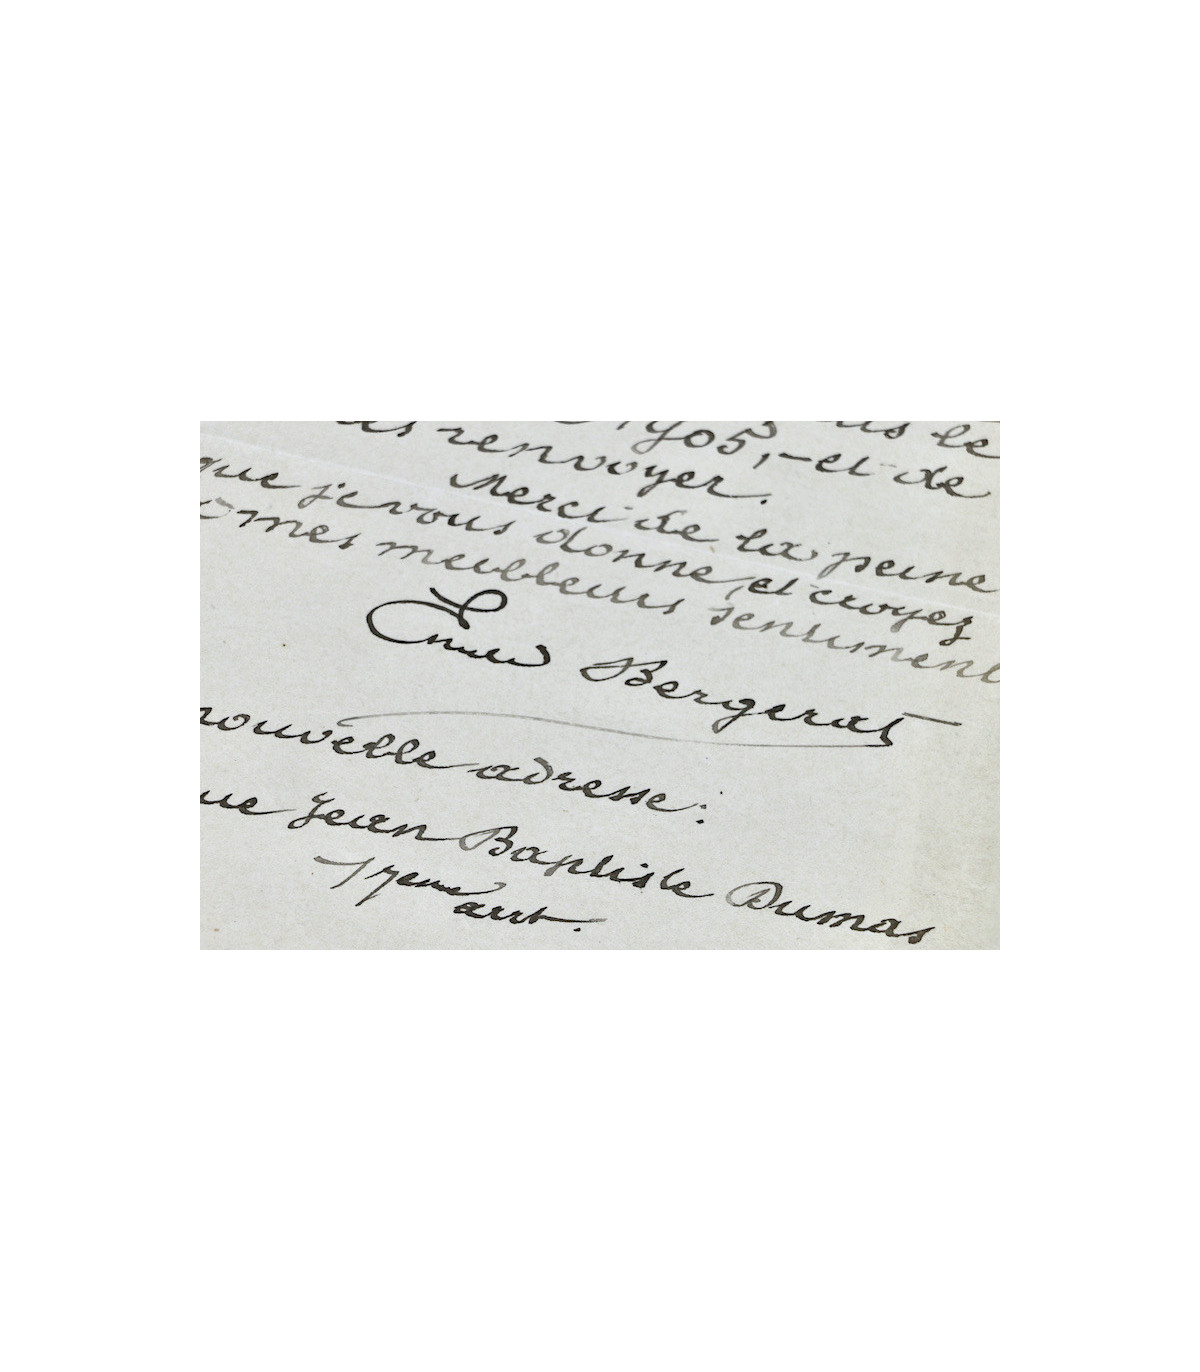 1905, - et de
renvoyer.
Merci de la peine
que je vous donne, et croyez
mes meilleurs sentiment
Emile Bergerat
nouvelle adresse:
ue Jean Baptiste Dumas
17eme arrt.